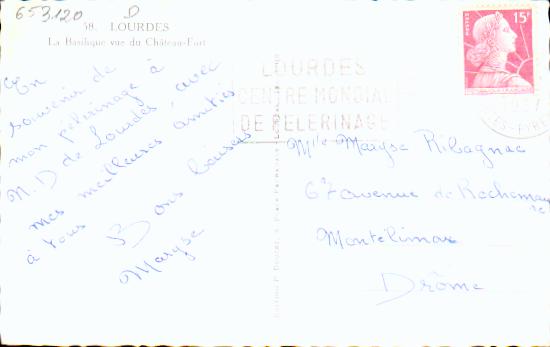 653120 D
58. LOURDES
La Basilique vue du Château-Fort
En
souvenir de
mon pélerinage à
N.D de Lourdes, avec
mes meilleures amitiés
à tous Bons baisers
Maryse
POSTES
15F
LOURDES
CENTRE MONDIAL
DE PELERINAGE
Mlle Maryse Ribagnac
67 avenue de Rochemaure
Montélimar
Drôme